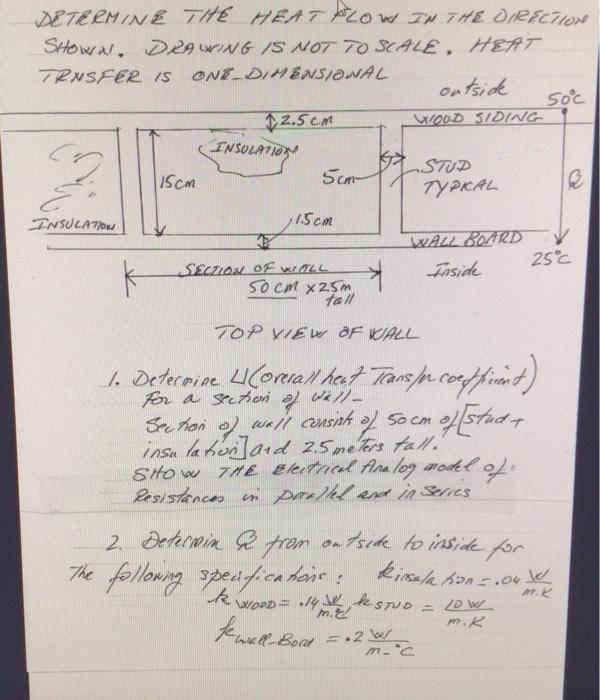 DETERMINE THE HEAT FLOW IN THE DIRECTION
SHOWN. DRAWING IS NOT TO SCALE. HEAT
TRNSFER IS ONE-DIMENSIONAL
outside
50°C
2.5 cm
WOOD SIDING
INSULATION
15cm
5cm
STUD
TYPICAL
Q
INSULATION
1.5 cm
WALL BOARD
25°C
SECTION OF WALL
Inside
50 cm x 2.5m
tall
TOP VIEW OF WALL
1. Determine U (overall heat Transfer coefficient)
For a section of wall-
Section of wall consist of 50 cm of [stud +
insulation] and 2.5 meters tall.
SHOW THE Electrical Analog model of
Resistances in parallel and in series
2. Determin Q from outside to inside for
The following specifications: kinsulation = .04 W/m.K
k WOOD = .14 W/m.K, k STUD = 10 W/m.K
k wall-Bord = .2 W/m-°C